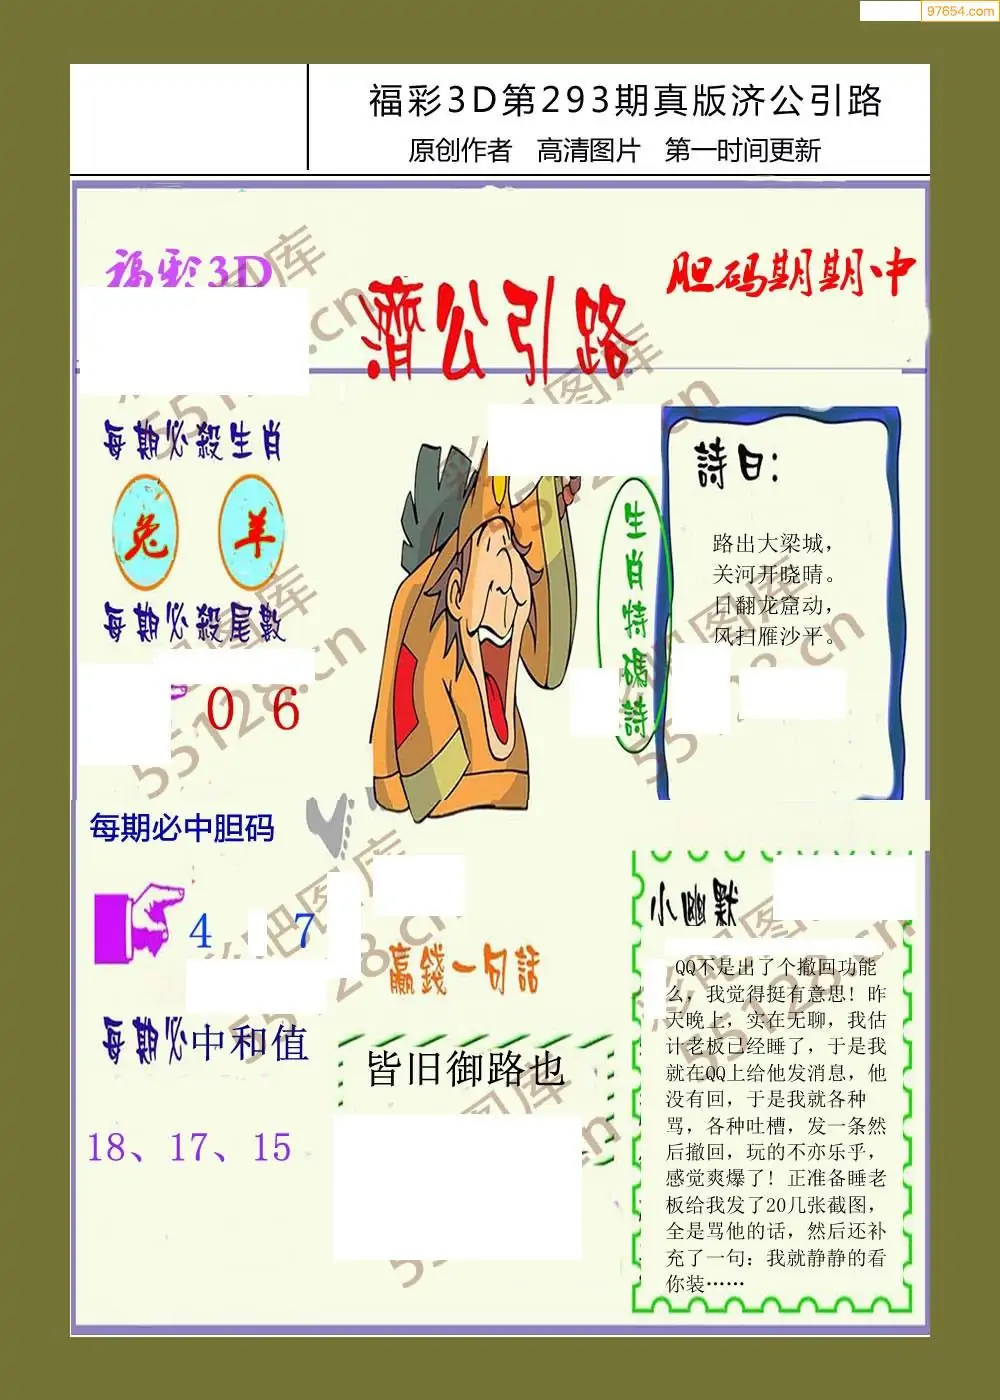 97654.com
福彩3D第293期真版济公引路
原创作者 高清图片 第一时间更新
福彩3D
濟公引路
胆码期期中
每期必殺生肖
兔 羊
每期必殺尾數
0 6
生肖特碼詩
詩曰:
路出大梁城，
关河开晓晴。
日翻龙窟动，
风扫雁沙平。
每期必中胆码
4 7
每期必中和值
18、17、15
贏錢一句話
皆旧御路也
小幽默
QQ不是出了个撤回功能
么，我觉得挺有意思！昨
天晚上，实在无聊，我估
计老板已经睡了，于是我
就在QQ上给他发消息，他
没有回，于是我就各种
骂，各种吐槽，发一条然
后撤回，玩的不亦乐乎，
感觉爽爆了！正准备睡老
板给我发了20几张截图，
全是骂他的话，然后还补
充了一句：我就静静的看
你装……
彩吧图库
55128.cn